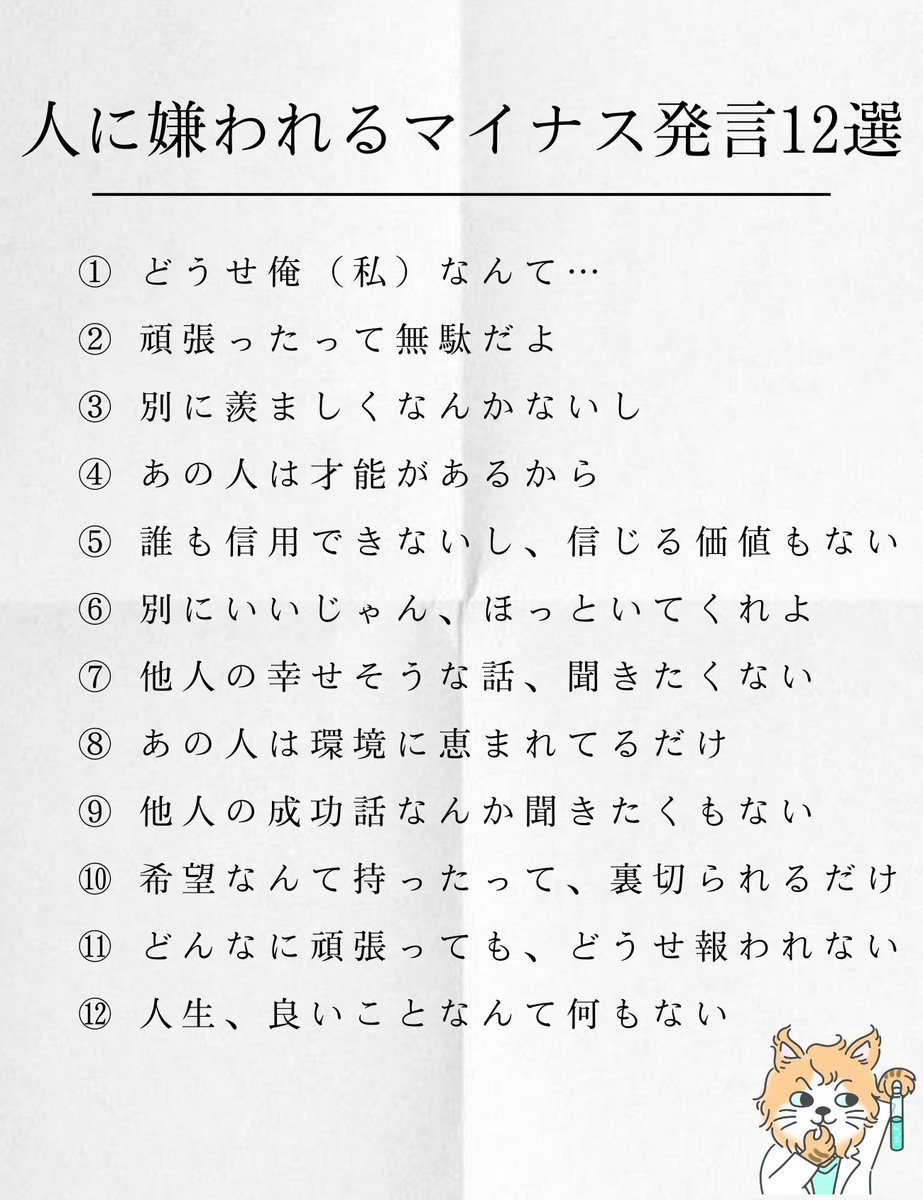 人に嫌われるマイナス発言12選
① どうせ俺（私）なんて…
② 頑張ったって無駄だよ
③ 別に羨ましくなんかないし
④ あの人は才能があるから
⑤ 誰も信用できないし、信じる価値もない
⑥ 別にいいじゃん、ほっといてくれよ
⑦ 他人の幸せそうな話、聞きたくない
⑧ あの人は環境に恵まれてるだけ
⑨ 他人の成功話なんか聞きたくもない
⑩ 希望なんて持ったって、裏切られるだけ
⑪ どんなに頑張っても、どうせ報われない
⑫ 人生、良いことなんて何もない